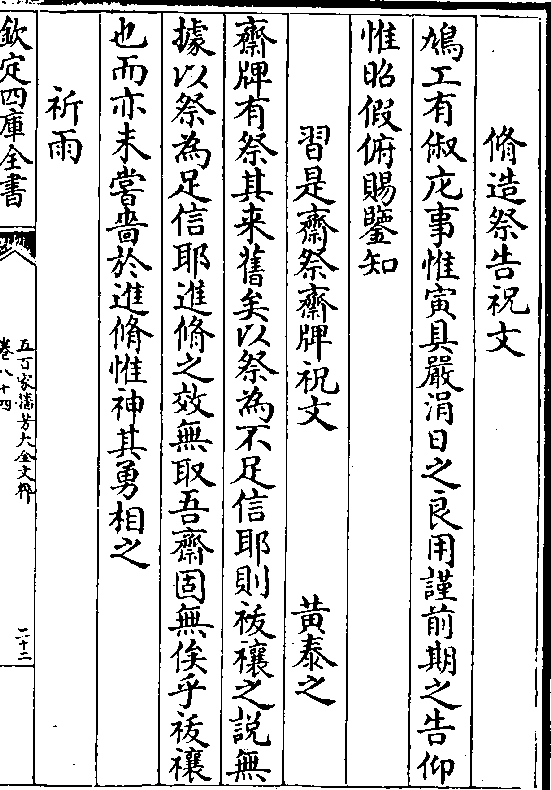 脩造祭告祝文
鳩工有俶庀事惟寅具嚴涓日之良用謹前期之告仰
惟昭假俯賜鑒知
習是齋祭齋牌祝文 黄泰之
齋牌有祭其来舊矣以祭為不足信耶則祓禳之說無
據以祭為足信耶進脩之效無取吾齋固無俟乎祓禳
也而亦未嘗嗇於進脩惟神其勇相之
祈雨
欽定四庫全書
五百家播芳大全文粹
卷八十四
二十二